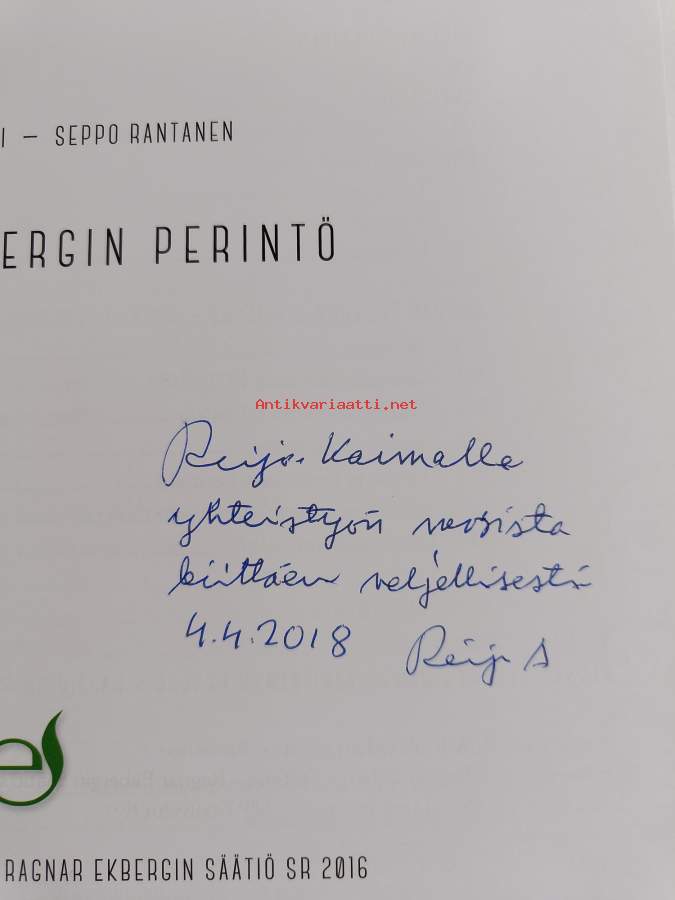 I – SEPPO RANTANEN
ERGIN PERINTÖ
Antikvariaatti.net
Reijo Kaimalle
yhteistyön vuosista
kiittäen veljellisesti
4.4.2018 Reijo A
e
RAGNAR EKBERGIN SÄÄTIÖ SR 2016